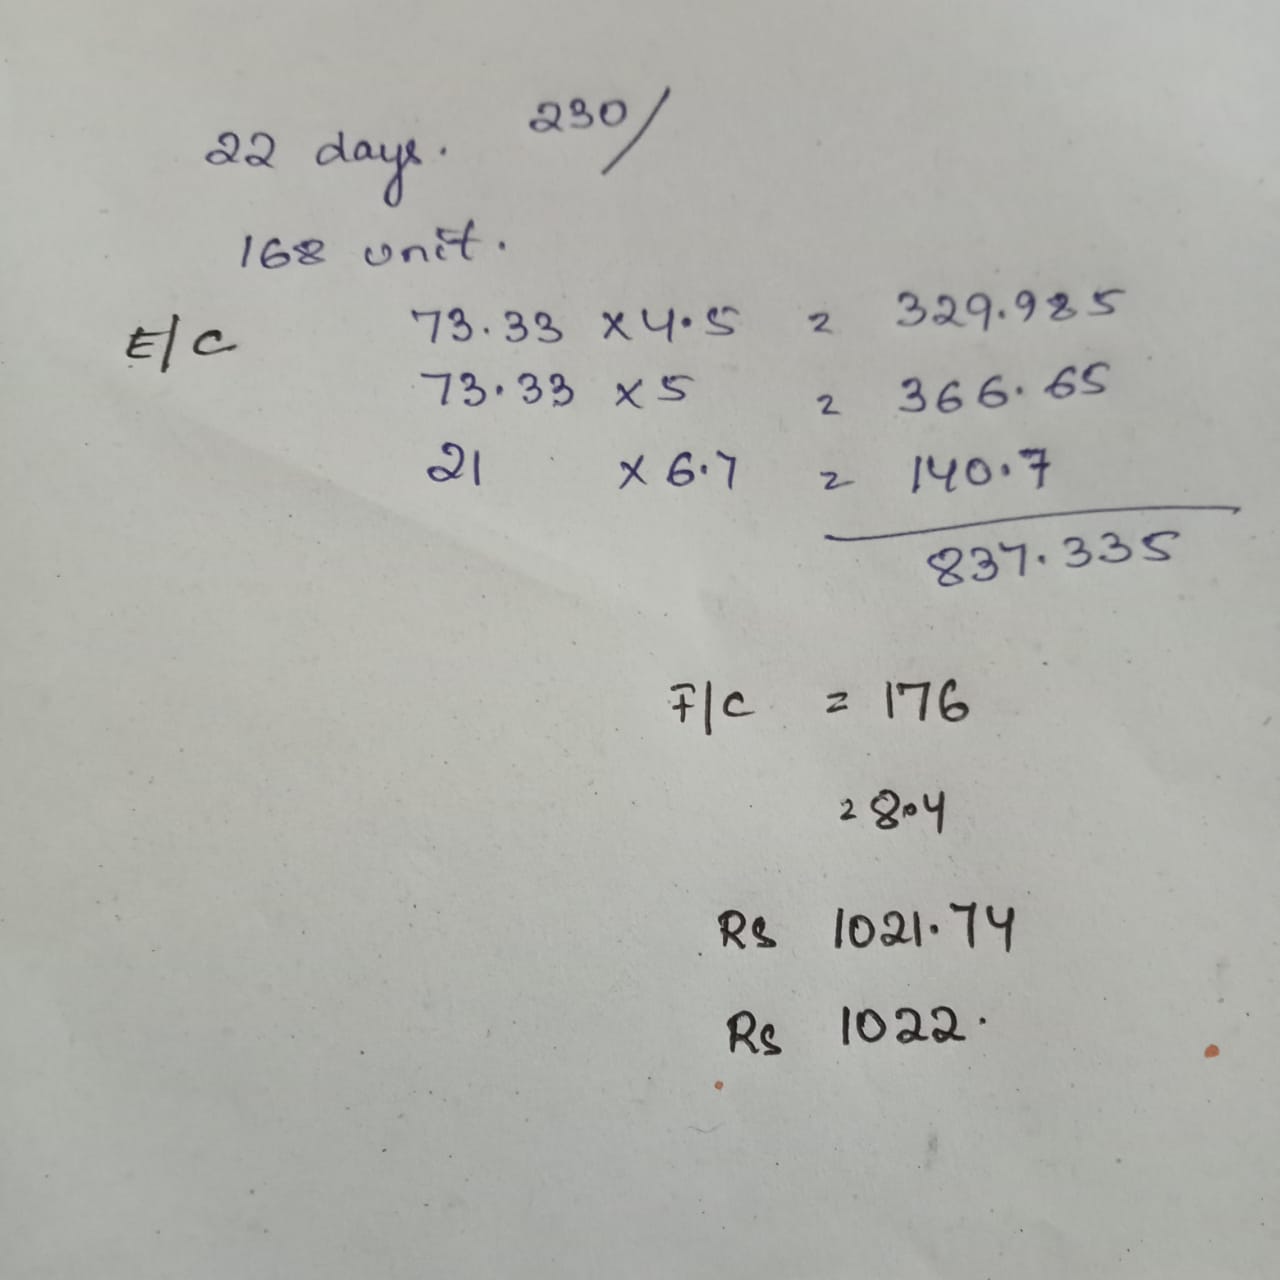 22 days. 230/
168 unit.
E/C 73.33 x 4.5 = 329.985
73.33 x 5 = 366.65
21 x 6.7 = 140.7
837.335
F/C = 176
= 8.4
Rs 1021.74
Rs 1022.